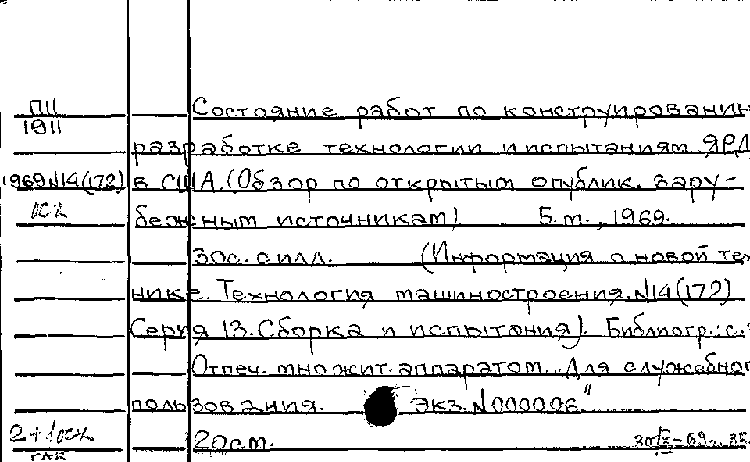 П11
1011
Состояние работ по конструировани
разработке технологии и испытаниям ЯРД
1969 N14(172) в США. (Обзор по открытым опублик. зару-
бежным источникам) 5.m., 1969.
30с. с илл. (Информация о новой тех
нике. Технология машиностроения. N14(172)
Серия 13. Сборка и испытания). Библиогр.: с.
Отпеч. множит. аппаратом. Для служебног
пользования. Экз. N000006"
20см.